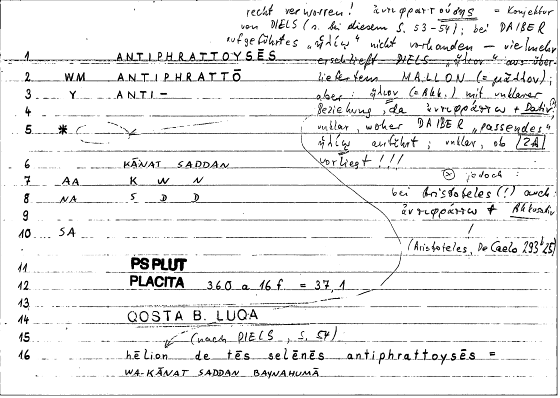 recht verworren! ἀντιφραττούσης = Konjektur
von DIELS (s. bei diesem S. 53-54); bei DAIBER
aufgeführtes „ἡλίῳ" nicht vorhanden – vielmehr
erschließt DIELS „ἥλιον" aus über-
liefertem MALLON (= μᾶλλον);
aber: ἥλιον (= Akk.) mit unklarer
Beziehung, da ἀντιφράττω + Dativ
unklar, woher DAIBER „passendes"
ἡλίῳ anführt; unklar, ob ZA
vorliegt!!!
jedoch:
bei Aristoteles (!) auch
ἀντιφράττω + Akkusativ
!
(Aristoteles, De Caelo 293b25)
1 ANTIPHRATTOYSĒS
2 WM ANTIPHRATTŌ
3 Y ANTI-
4
5 *
6 KĀNAT SADDAN
7 AA K W N
8 NA S D D
9
10 SA
11 PS PLUT
12 PLACITA 360 a 16 f. = 37,1
13
14 QOSTA B. LUQA
15 (nach DIELS, S. 54)
16 hēlion de tēs selēnēs antiphrattoysēs =
WA-KĀNAT SADDAN BAYNAHUMĀ